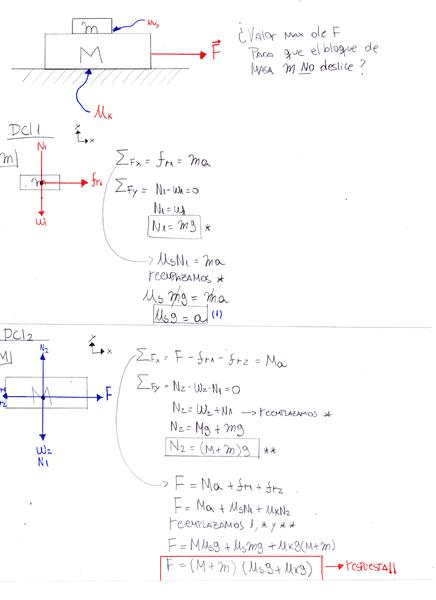 m
μs
M
F
μK
¿Valor max de F
Para que el bloque de
masa m NO deslice?
DCL1
y
x
m
N1
m
fr1
W1
ΣFx = fr1 = ma
ΣFy = N1 - W1 = 0
N1 = W1
N1 = mg *
μsN1 = ma
reemplazamos *
μs mg = ma
μsg = a (1)
DCL2
y
x
M
N2
M
F
W2
N1
ΣFx = F - fr1 - fr2 = Ma
ΣFy = N2 - W2 - N1 = 0
N2 = W2 + N1 → reemplazamos *
N2 = Mg + mg
N2 = (M+m)g **
F = Ma + fr1 + fr2
F = Ma + μsN1 + μKN2
reemplazamos 1, * y **
F = Mμsg + μsmg + μKg(M+m)
F = (M+m) (μsg + μKg) → respuesta//